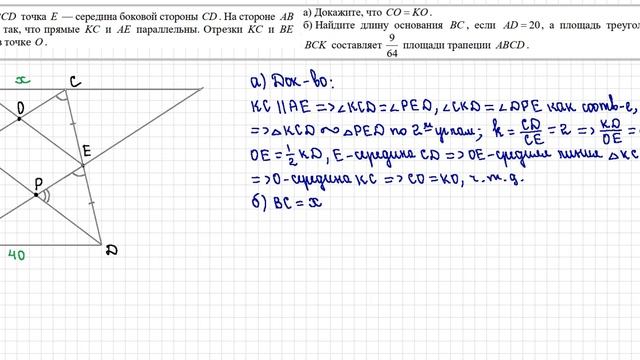 CD точка E — середина боковой стороны CD. На стороне AB
так, что прямые KC и AE параллельны. Отрезки KC и BE
в точке O.
а) Докажите, что CO = KO.
б) Найдите длину основания BC, если AD = 20, а площадь
BCK составляет 9/64 площади трапеции ABCD.
x
C
O
E
P
40
D
а) Док-во:
KC ∥ AE ⇒ ∠KCD = ∠PED, ∠CKD = ∠DPE как соотв-е,
⇒ △KCD ∾ △PED по 2м углам; k = CD/CE = 2 ⇒ KD/OE =
OE = 1/2 KD, E-середина CD ⇒ OE-средняя линия △KC
⇒ O-середина KC ⇒ CO = KO, ч.т.д.
б) BC = x